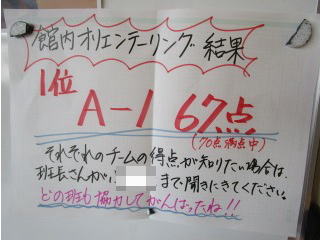 館内オリエンテーリング 結果
1位
A-1 67点
(70点満点中)
それぞれのチームの得点が知りたい場合は、
班長さんが、まで聞きにきてください。
どの班も協力してがんばったね!!